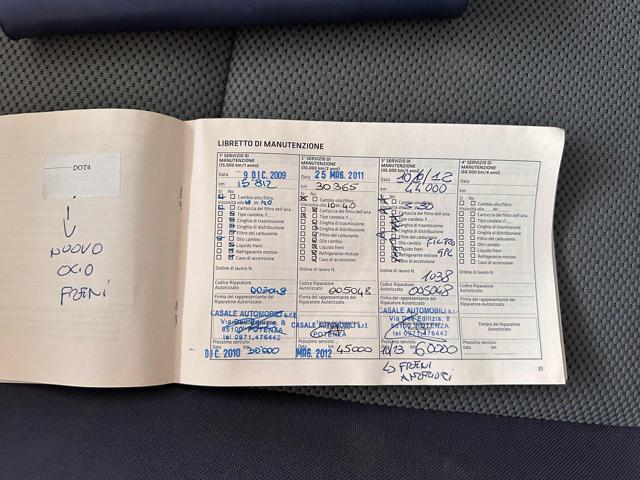 DOT4
NUOVO
OLIO
FRENI
LIBRETTO DI MANUTENZIONE
1° SERVIZIO DI
MANUTENZIONE
(15.000 km/1 anno)
Data 9 DIC. 2009
km 15 812
Si No
Cambio olio/filtro
Viscosità olio
Cartuccia del filtro dell'aria
Tipo candela: F
Cinghia di trasmissione
Cinghia di distribuzione
Filtro del carburante
Olio cambio
Liquido freni
Refrigerante motore
Cavo di accensione
Ordine di lavoro N.
Codice Riparatore
Autorizzato 005048
Firma del rappresentante del
Riparatore Autorizzato
CASALE AUTOMOBILI s.r.l.
Via Dell'Edilizia, 8
85100 POTENZA
tel 0971.476442
Prossimo servizio:
DIC. 2010 30000
2° SERVIZIO DI
MANUTENZIONE
(30.000 km/2 anni)
Data 25 MAG. 2011
km 30365
Si No
Cambio olio/filtro
Viscosità olio 10-40
Cartuccia del filtro dell'aria
Tipo candela: F
Cinghia di trasmissione
Cinghia di distribuzione
Filtro del carburante
Olio cambio
Liquido freni
Refrigerante motore
Cavo di accensione
Ordine di lavoro N.
Codice Riparatore
Autorizzato 005048
Firma del rappresentante del
Riparatore Autorizzato
CASALE AUTOMOBILI s.r.l.
POTENZA
Prossimo servizio:
MAG. 2012 45000
3° SERVIZIO DI
MANUTENZIONE
(45.000 km/3 anni)
Data
km 44000
Si No
Cambio olio/filtro
Viscosità olio
Cartuccia del filtro dell'aria
Tipo candela: F
Cinghia di trasmissione
Cinghia di distribuzione
Filtro del carburante
Olio cambio FILTRO
Liquido freni GPL
Refrigerante motore
Cavo di accensione
Ordine di lavoro N.
1038
Codice Riparatore
Autorizzato 005048
Firma del rappresentante del
Riparatore Autorizzato
CASALE AUTOMOBILI s.r.l.
Via Dell'Edilizia, 8
85100 POTENZA
tel 0971.476442
Prossimo servizio:
10/13 60000
FRENI
ANTERIORI
4° SERVIZIO DI
MANUTENZIONE
(60.000 km/4 anni)
Data
km
Si No
Cambio olio/filtro
Viscosità olio
Cartuccia del filtro dell'aria
Tipo candela: F
Cinghia di trasmissione
Cinghia di distribuzione
Filtro del carburante
Olio cambio
Liquido freni
Refrigerante motore
Cavo di accensione
Ordine di lavoro N.
Codice Riparatore
Autorizzato
Firma del rappresentante del
Riparatore Autorizzato
Timbro del Riparatore
Autorizzato
Prossimo servizio:
Data km
31